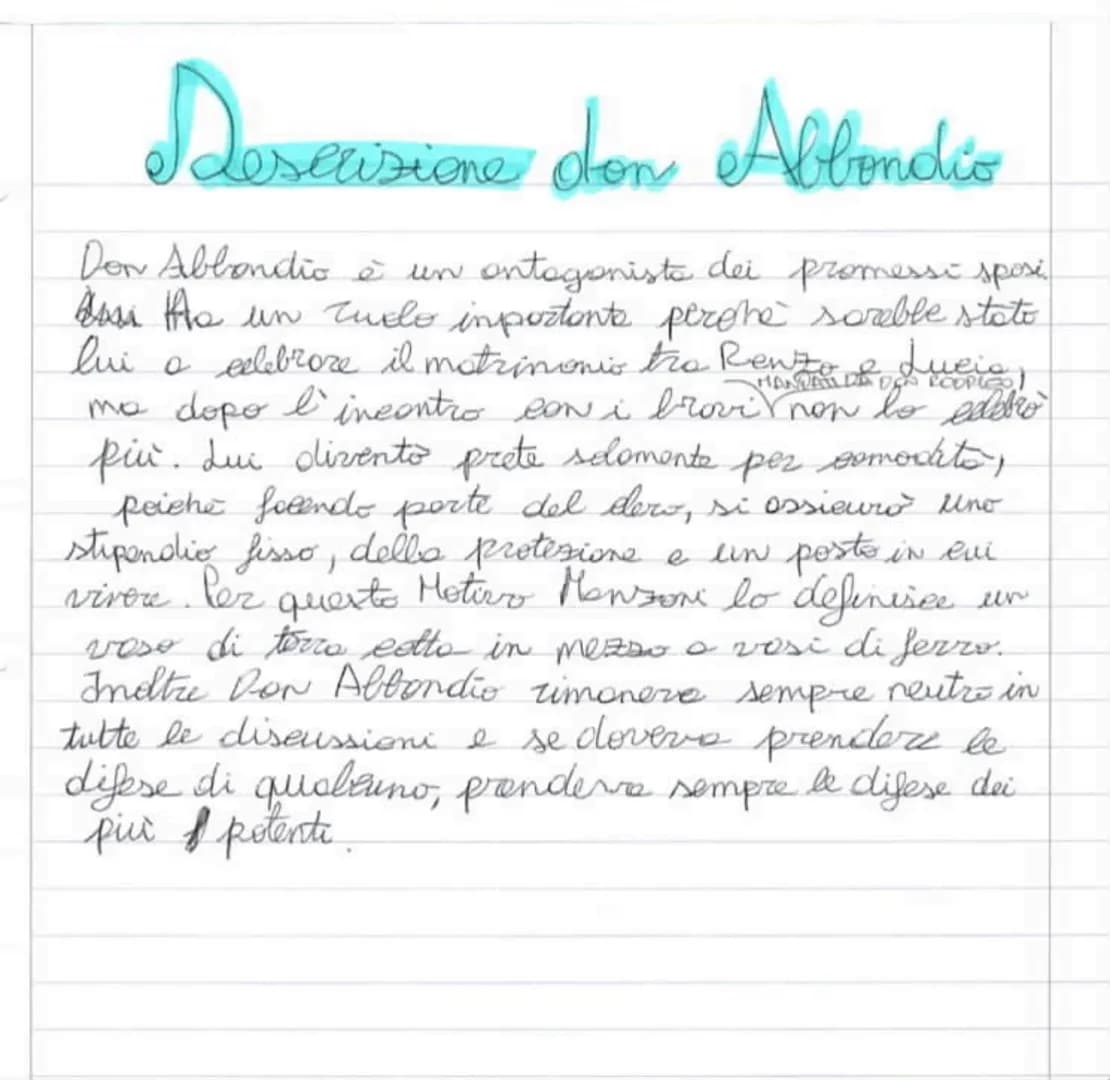 Descrizione don Abbondio
Don Abbondio è un antagonista dei promessi sposi.
Ha un ruolo inportante perchè sarebbe stato
lui a celebrare il matrimonio tra Renzo e Lucia,
MANDATI DA DON RODRIGO
ma dopo l'incontro con i bravi non lo celebrò
più. Lui diventò prete solamente per comodità,
poichè facendo parte del clero, si assicurò uno
stipendio fisso, della protezione e un posto in cui
vivere. Per questo Motivo Manzoni lo definisce un
vaso di terra cotta in mezzo a vasi di ferro.
Inoltre Don Abbondio rimaneva sempre neutro in
tutte le discussioni e se doveva prendere le
difese di qualcuno, prendeva sempre le difese dei
più potenti.